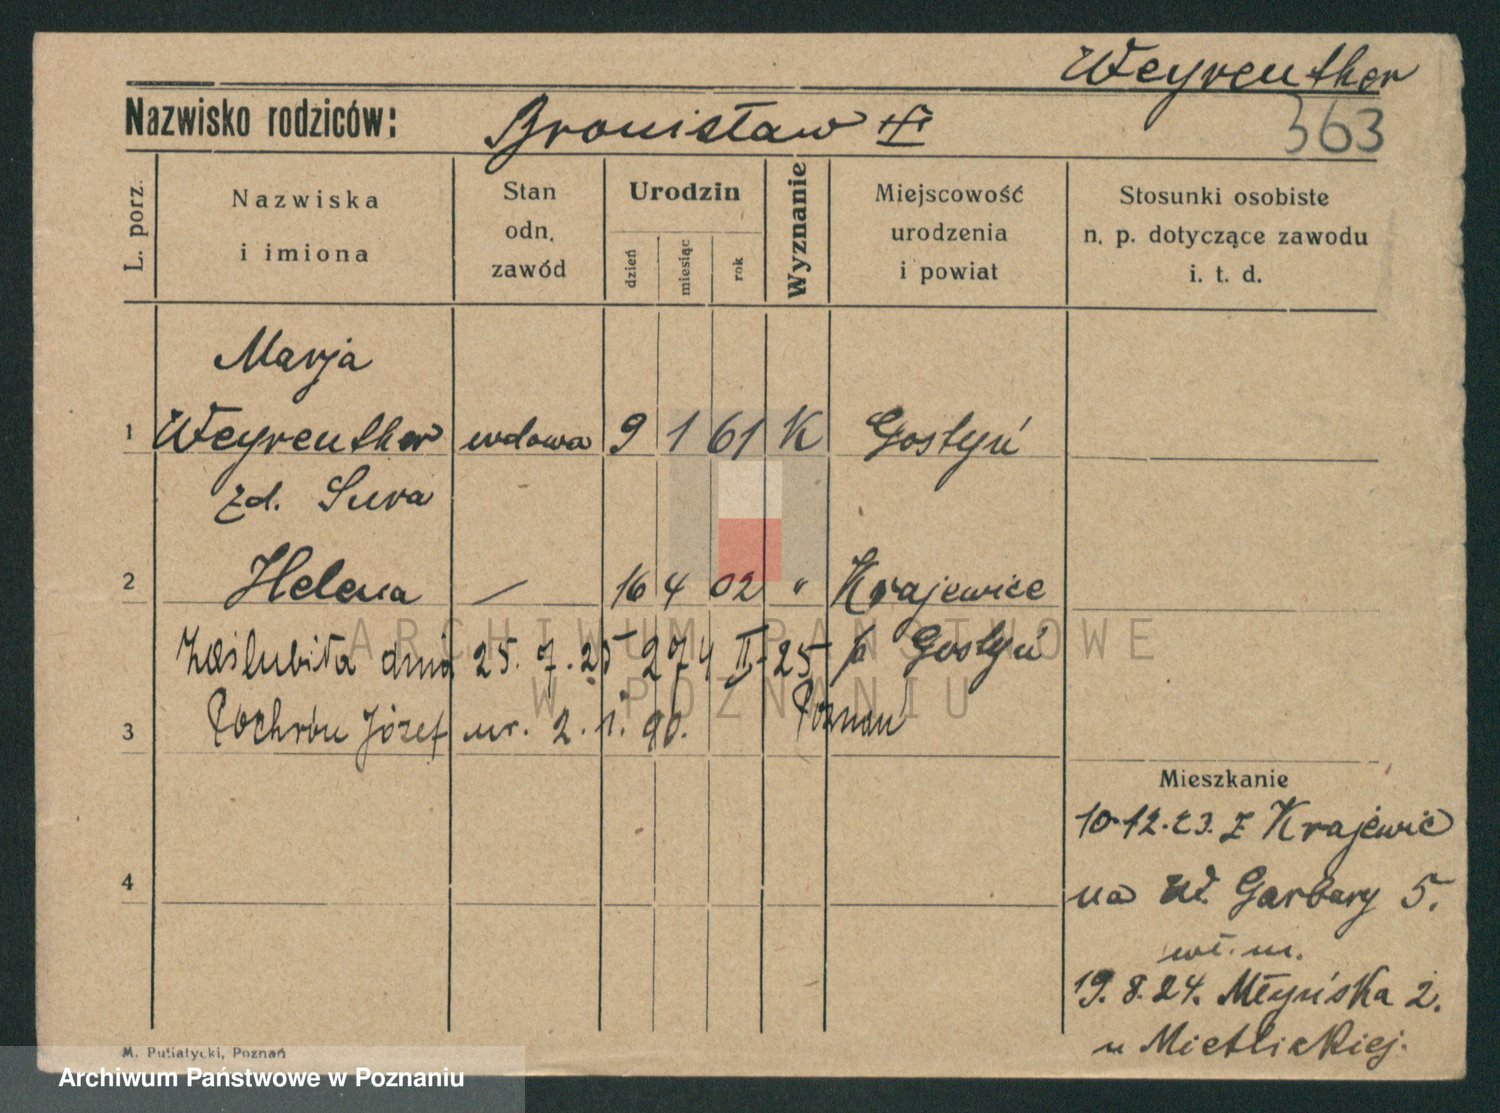 Weyrenther
Nazwisko rodziców: Bronisław
363
L. porz.
Nazwiska
i imiona
Stan
odn.
zawód
Urodzin
dzień
miesiąc
rok
Wyznanie
Miejscowość
urodzenia
i powiat
Stosunki osobiste
n. p. dotyczące zawodu
i. t. d.
Marja
1 Weyrenther wdowa 9 1 61 K Gostyń
zd. Sura
2 Helena — 16 4 02 " Krajewice
Zaślubiła dnia 25. 7. 25 274 II-25 p. Gostyń
3 Pochron Józef ur. 2. 1. 90. Poznań
4
Mieszkanie
10.12.23. z Krajewic
na ul. Garbary 5.
wł. m.
19.8.24. Młyńska 2.
u Mietlickiej.
ARCHIWUM PAŃSTWOWE
W POZNANIU
M. Putiatycki, Poznań
Archiwum Państwowe w Poznaniu